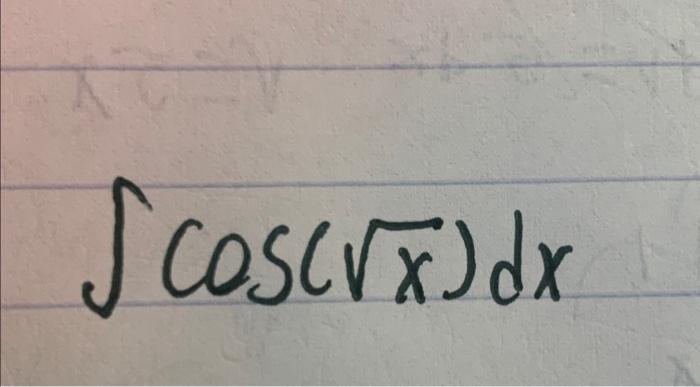 ∫cos(√x)dx